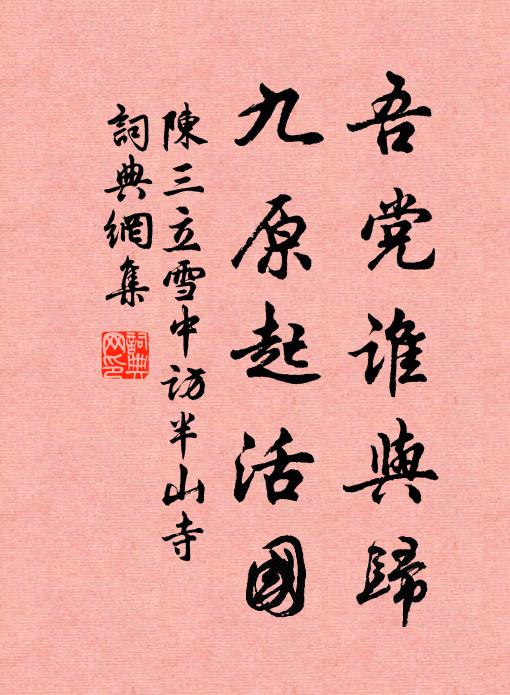 吾党谁與歸
九原起活國
陳三立雪中访半山寺
詞典網集
詞典網印